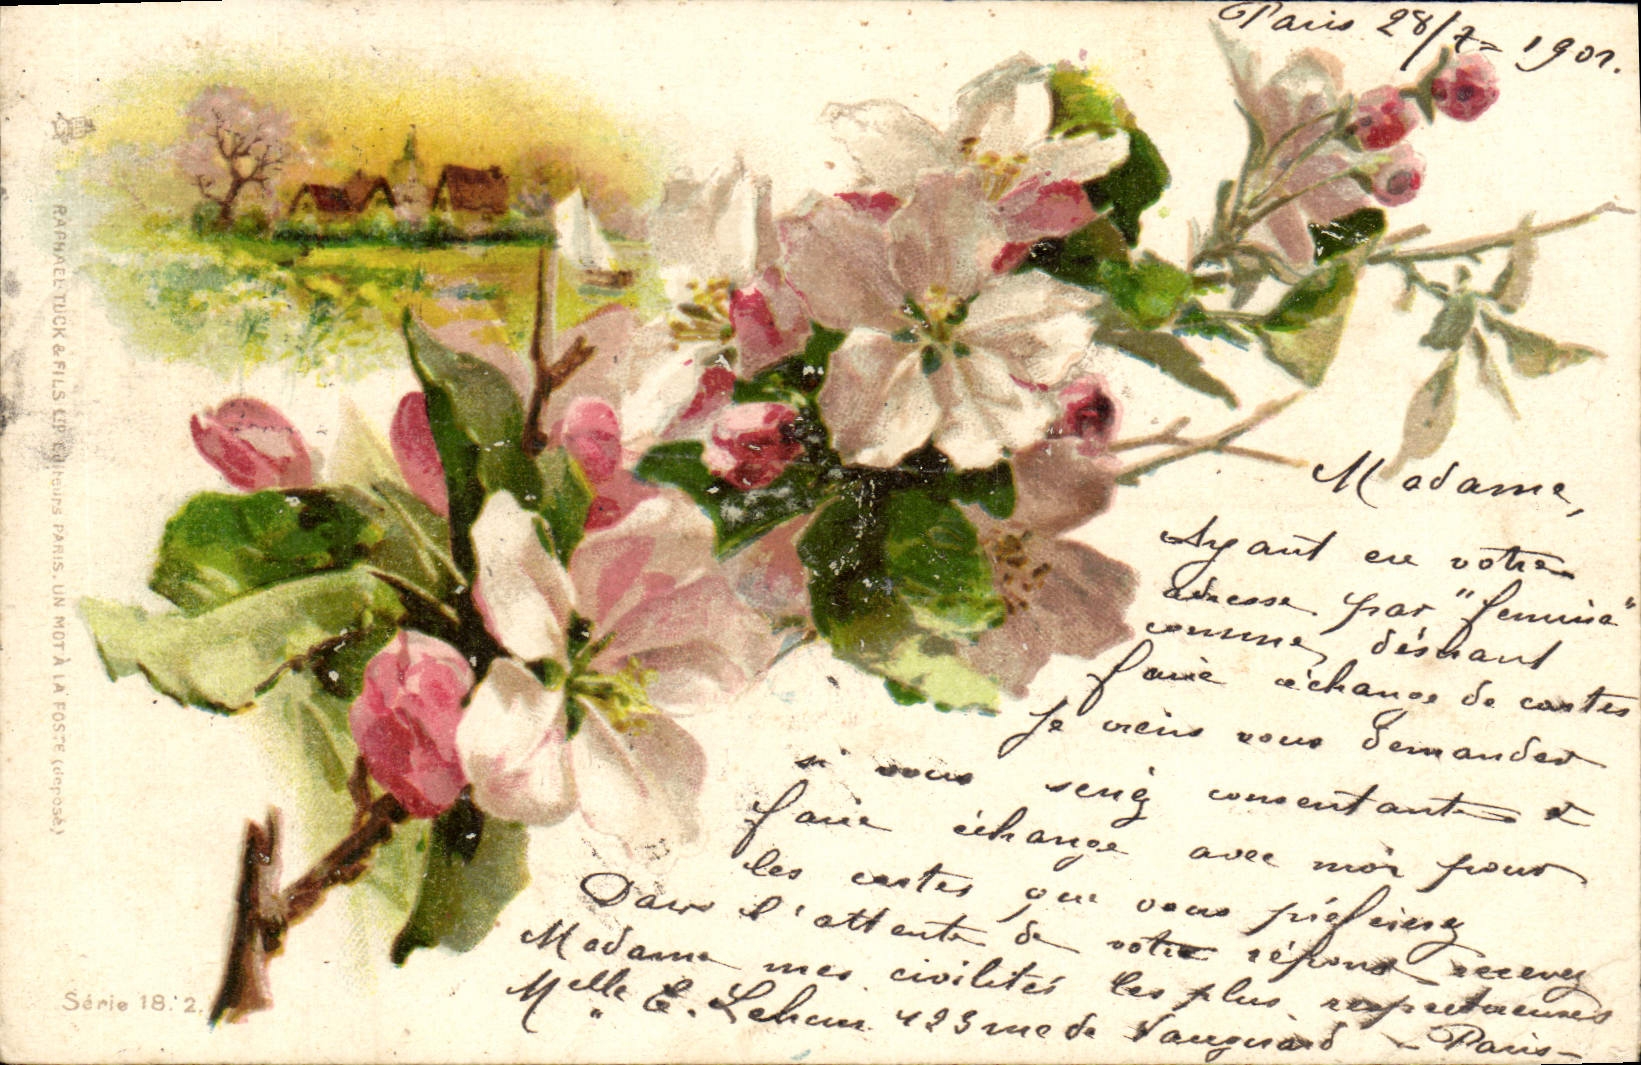 Paris 28/7 - 1901.
Madame,
Ayant eu votre
adresse par "femina"
comme désirant
faire échange de cartes
je viens vous demander
si vous seriez consentante à
faire échange avec moi pour
les cartes que vous préférez
Dans l'attente de votre réponse recevez
Madame mes civilités les plus respectueuses
Melle E. 423 rue de Vaugirard - Paris -
RAPHAEL TUCK & FILS LTD Editeurs PARIS. UN MOT À LA POSTE (déposé)
Série 18. 2.